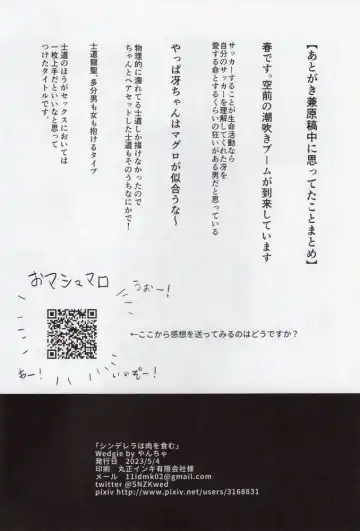 【あとがき兼原稿中に思ってたことまとめ】
春です。空前の潮吹きブームが到来しています
サッカーすることが生命活動なら
自分のサッカーを理解してくれた冴を
愛する命とするくらいの狂いがある男だと思っている
やっぱ冴ちゃんはマグロが似合うな～
物理的に濡れてる士道しか描けなかったので
ちゃんとヘアセットした士道もそのうちなにかで！
士道龍聖、多分男も女も抱けるタイプ
士道のほうがセックスにおいては
一枚上手だといいなと思って
つけたタイトルです。
おマシュマロ
うおー！
わー！
いいぞー！
←ここから感想を送ってみるのはどうですか？
「シンデレラは肉を食む」
Wedgie by やんちゃ
発行日 2023/5/4
印刷 丸正インキ有限会社様
メール 11idmk02@gmail.com
twitter @SNZKwed
pixiv http://www.pixiv.net/users/3168831